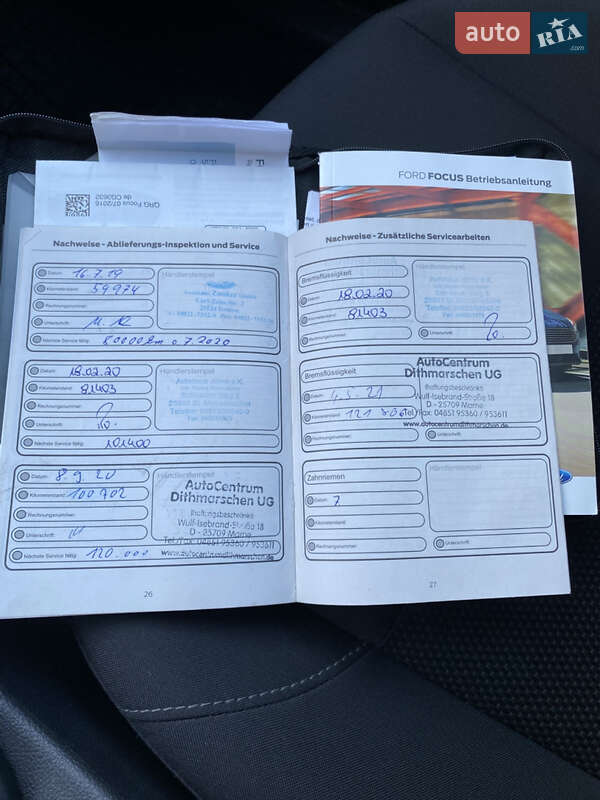 auto RIA .com
FORD FOCUS Betriebsanleitung
QRG Focus 07/2016
de CG3632
Nachweise - Ablieferungs-Inspektion und Service
Datum: 16.7.19
Händlerstempel
Kilometerstand: 59974
Rechnungsnummer:
Unterschrift:
Nächste Service fällig: 80000 km o 7.2020
Datum: 18.02.20
Händlerstempel
Kilometerstand: 81403
Rechnungsnummer:
Unterschrift:
Nächste Service fällig: 101400
Datum: 8.9.20
Händlerstempel
Kilometerstand: 100702
AutoCentrum
Dithmarschen UG
Rechnungsnummer:
(haftungsbeschränkt)
Wulf-Isebrand-Straße 18
Unterschrift:
D - 25709 Marne
Tel./Fax: 04851 95360 / 953611
Nächste Service fällig: 120.000
www.autocentrumdithmarschen.de
26
Nachweise - Zusätzliche Servicearbeiten
Bremsflüssigkeit
Händlerstempel
Datum: 18.02.20
Kilometerstand: 81403
Rechnungsnummer:
Unterschrift:
Bremsflüssigkeit
AutoCentrum
Dithmarschen UG
Datum: 4.5.21
(haftungsbeschränkt)
Wulf-Isebrand-Straße 18
Kilometerstand:
D - 25709 Marne
Tel./Fax: 04851 95360 / 953611
Rechnungsnummer:
www.autocentrumdithmarschen.de
Unterschrift:
Zahnriemen
Händlerstempel
Datum:
Kilometerstand:
Rechnungsnummer:
Unterschrift:
27